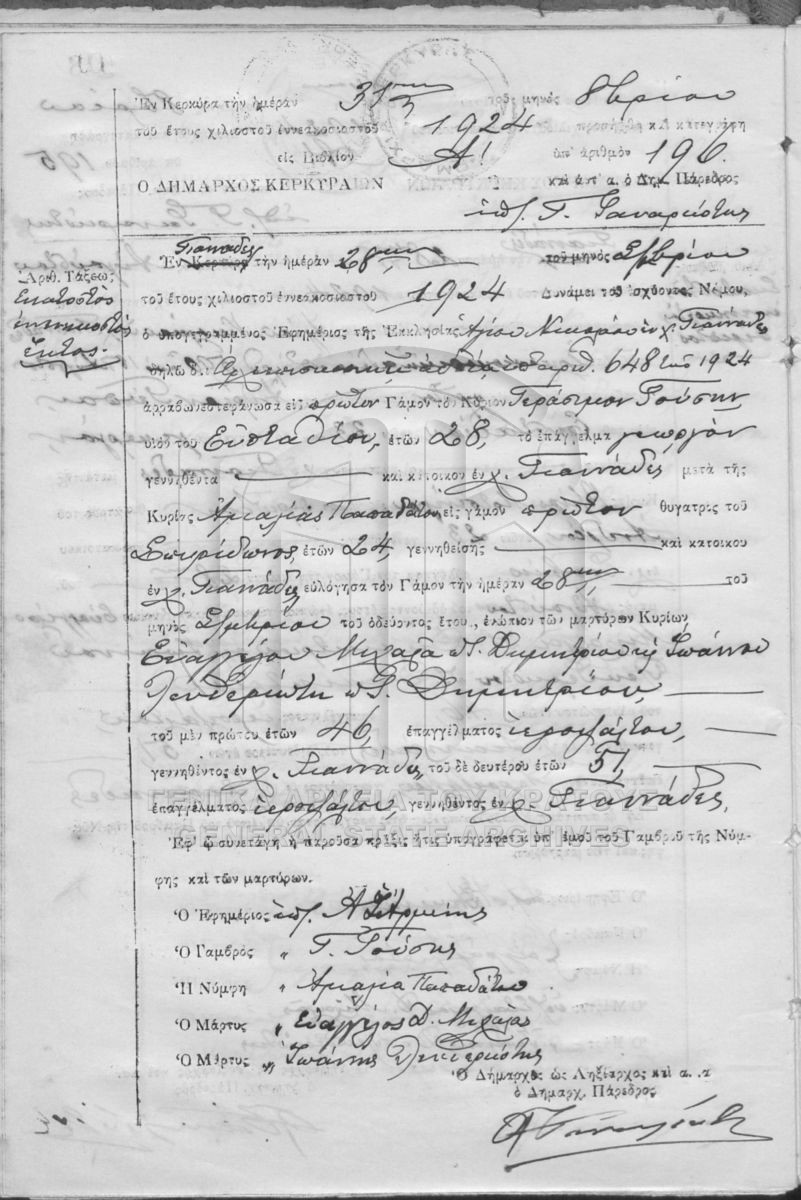 Ἐν Κερκύρᾳ τὴν ἡμέραν 31ην τοῦ μηνὸς 8βρίου
τοῦ ἔτους χιλιοστοῦ ἐννεακοσιοστοῦ 1924 προσήχθη καὶ κατεγράφη
εἰς Βιβλίον Α! ὑπ' ἀριθμὸν 196.
Ο ΔΗΜΑΡΧΟΣ ΚΕΡΚΥΡΑΙΩΝ καὶ ἀπ' α. ὁ Δημ. Πάρεδρος
ὑπ. Γ.
Γιαννάδες
Ἐν Κερκύρᾳ τὴν ἡμέραν 28ην τοῦ μηνὸς
Ἀριθ. Τάξεως
Ἑκατοστὸς
ἐννενηκοστὸς
ἕκτος.
τοῦ ἔτους χιλιοστοῦ ἐννεακοσιοστοῦ 1924 δυνάμει τοῦ ἰσχύοντος Νόμου,
ὁ ὑπογεγραμμένος Ἐφημέριος τῆς Ἐκκλησίας Ἁγίου Νικολάου ἐν χ. Γιαννάδες
δηλῶ ὅ. ἀριθ. 648 τοῦ 1924
ἀρραβωνεστεφάνωσα εἰς πρῶτον Γάμον τὸν Κύριον Γεράσιμον Γούσην,
υἱὸν τοῦ Εὐσταθίου, ἐτῶν 28, τὸ ἐπάγγελμα γεωργὸν
γεννηθέντα καὶ κάτοικον ἐν χ. Γιαννάδες μετὰ τῆς
Κυρίας Ἀμαλίας Παπαδάτου εἰς γάμον πρῶτον θυγατρὶς τοῦ
Σπυρίδωνος, ἐτῶν 24, γεννηθείσης καὶ κατοικου
ἐν χ. Γιαννάδες εὐλόγησα τὸν Γάμον τὴν ἡμέραν 28ην, τοῦ
μηνὸς τοῦ ὁδεύοντος ἔτου., ἐνώπιον τῶν μαρτύρων Κυρίων
Εὐαγγέλου Μιχαλᾶ Δημητρίου καὶ Ἰωάννου
Λευθεριώτη Δημητρίου,
τοῦ μὲν πρώτου ἐτῶν 46, ἐπαγγέλματος ἱεροψάλτου,
γεννηθέντος ἐν χ. Γιαννάδες, τοῦ δὲ δευτέρου ἐτῶν 51,
ἐπαγγέλματος ἱεροψάλτου, γεννηθέντος ἐν χ. Γιαννάδες,
ΓΕΝΙΚΑ ΑΡΧΕΙΑ ΤΟΥ ΚΡΑΤΟΥΣ
GENERAL STATE ARCHIVES
Ἐφ' ᾧ συνετάγη ἡ παροῦσα πρᾶξις ἥτις ὑπογράφεται ὑπ' ἐμοῦ τοῦ Γαμβροῦ τῆς Νύμ-
φης καὶ τῶν μαρτύρων.
Ὁ Ἐφημέριος ὑπ.
Ὁ Γαμβρὸς „ Γ. Γούσης
Ἡ Νύμφη „ Ἀμαλία Παπαδάτου
Ὁ Μάρτυς „ Εὐάγγελος Δ. Μιχαλᾶς
Ὁ Μάρτυς „ Ἰωάννης Λευθεριώτης
Ὁ Δήμαρχος ὡς Ληξίαρχος καὶ α. α
ὁ Δημαρχ. Πάρεδρος